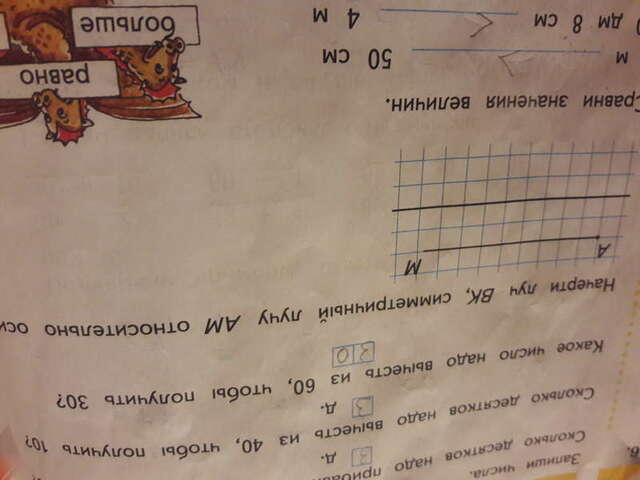 6.
Запиши числа.
Сколько десятков надо
3 д.
Сколько десятков надо вычесть из 40, чтобы получить 10?
3 д.
Какое число надо вычесть из 60, чтобы получить 30?
30
Начерти луч ВК, симметричный лучу АМ относительно
А М
Сравни значения величин.
м < 50 см
дм 8 см > 4 м
равно
больше